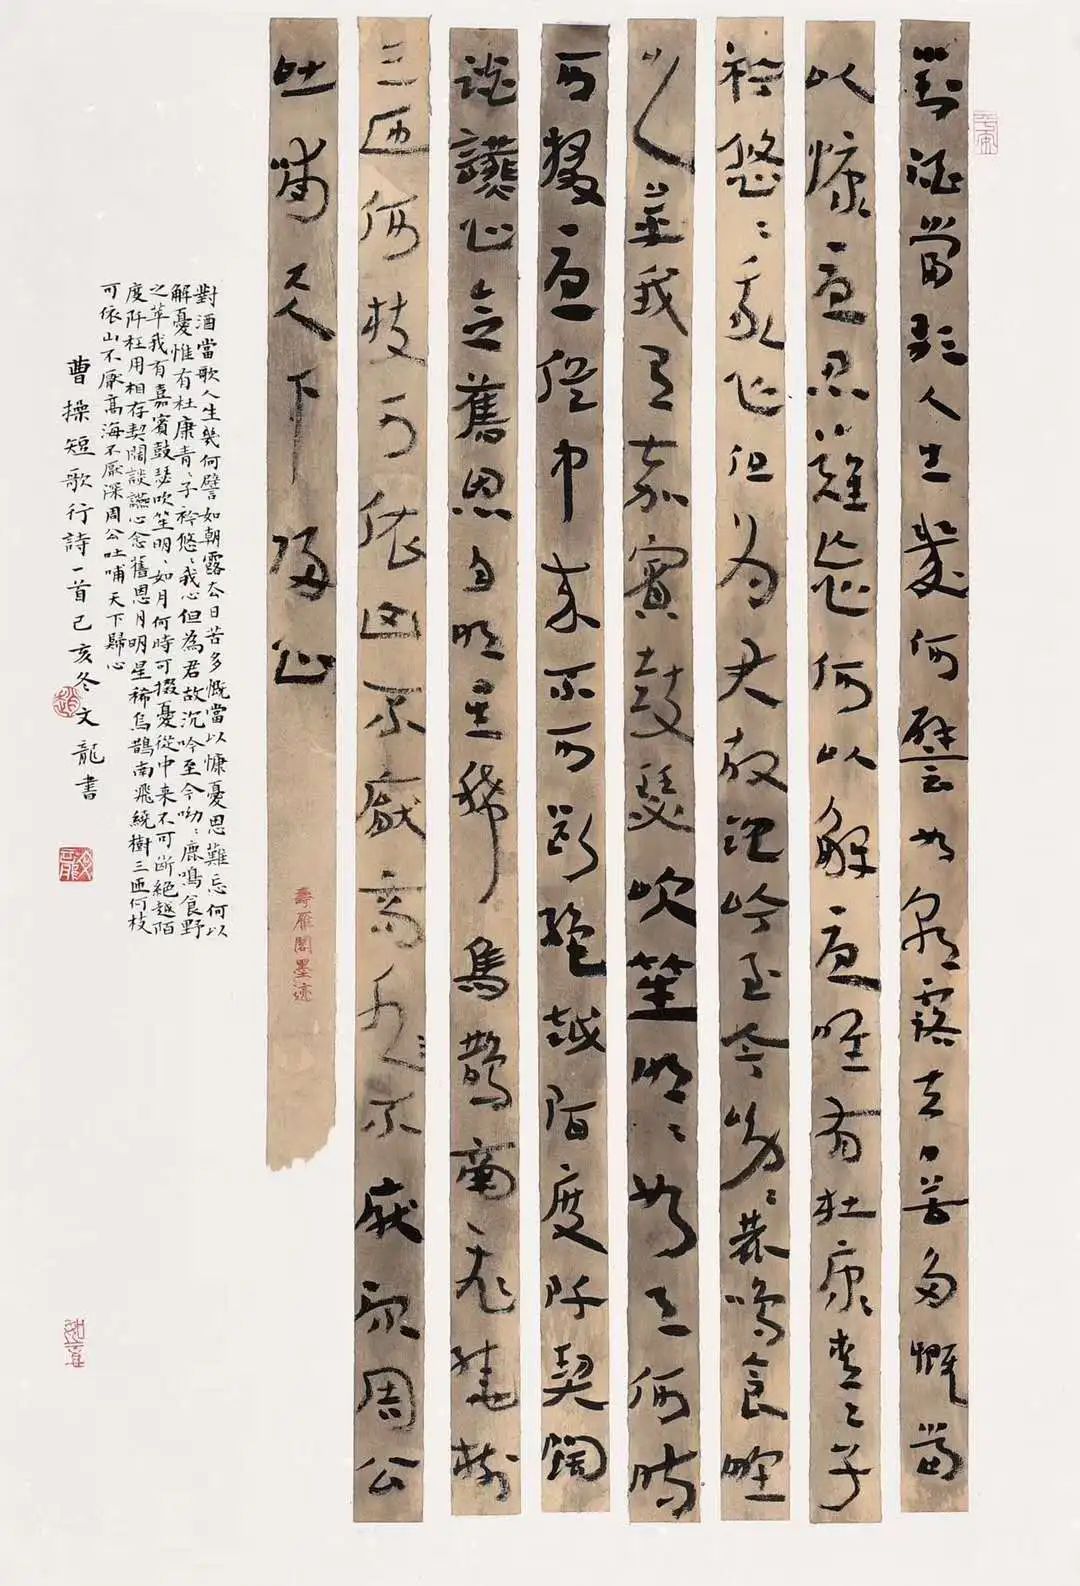 對酒當歌人生幾何譬如朝露去日苦多慨當
以慷憂思難忘何以解憂唯有杜康青〻子
衿悠〻我心但為君故沉吟至今呦〻鹿鳴食野
之苹我有嘉賓鼓瑟吹笙明〻如月何時
可掇憂從中來不可斷絕越陌度阡契闊
談讌心念舊恩月明星稀烏鵲南飛繞樹
三匝何枝可依山不厭高水不厭深周公
吐哺天下歸心
壽雁閣墨迹
對酒當歌人生幾何譬如朝露去日苦多慨當以慷憂思難忘何以
解憂惟有杜康青〻子衿悠〻我心但為君故沉吟至今呦〻鹿鳴食野
之苹我有嘉賓鼓瑟吹笙明〻如月何時可掇憂從中来不可斷絕越陌
度阡枉用相存契闊談讌心念舊恩月明星稀烏鵲南飛繞樹三匝何枝
可依山不厭高海不厭深周公吐哺天下歸心
曹操短歌行詩一首己亥冬文龍書
文龍